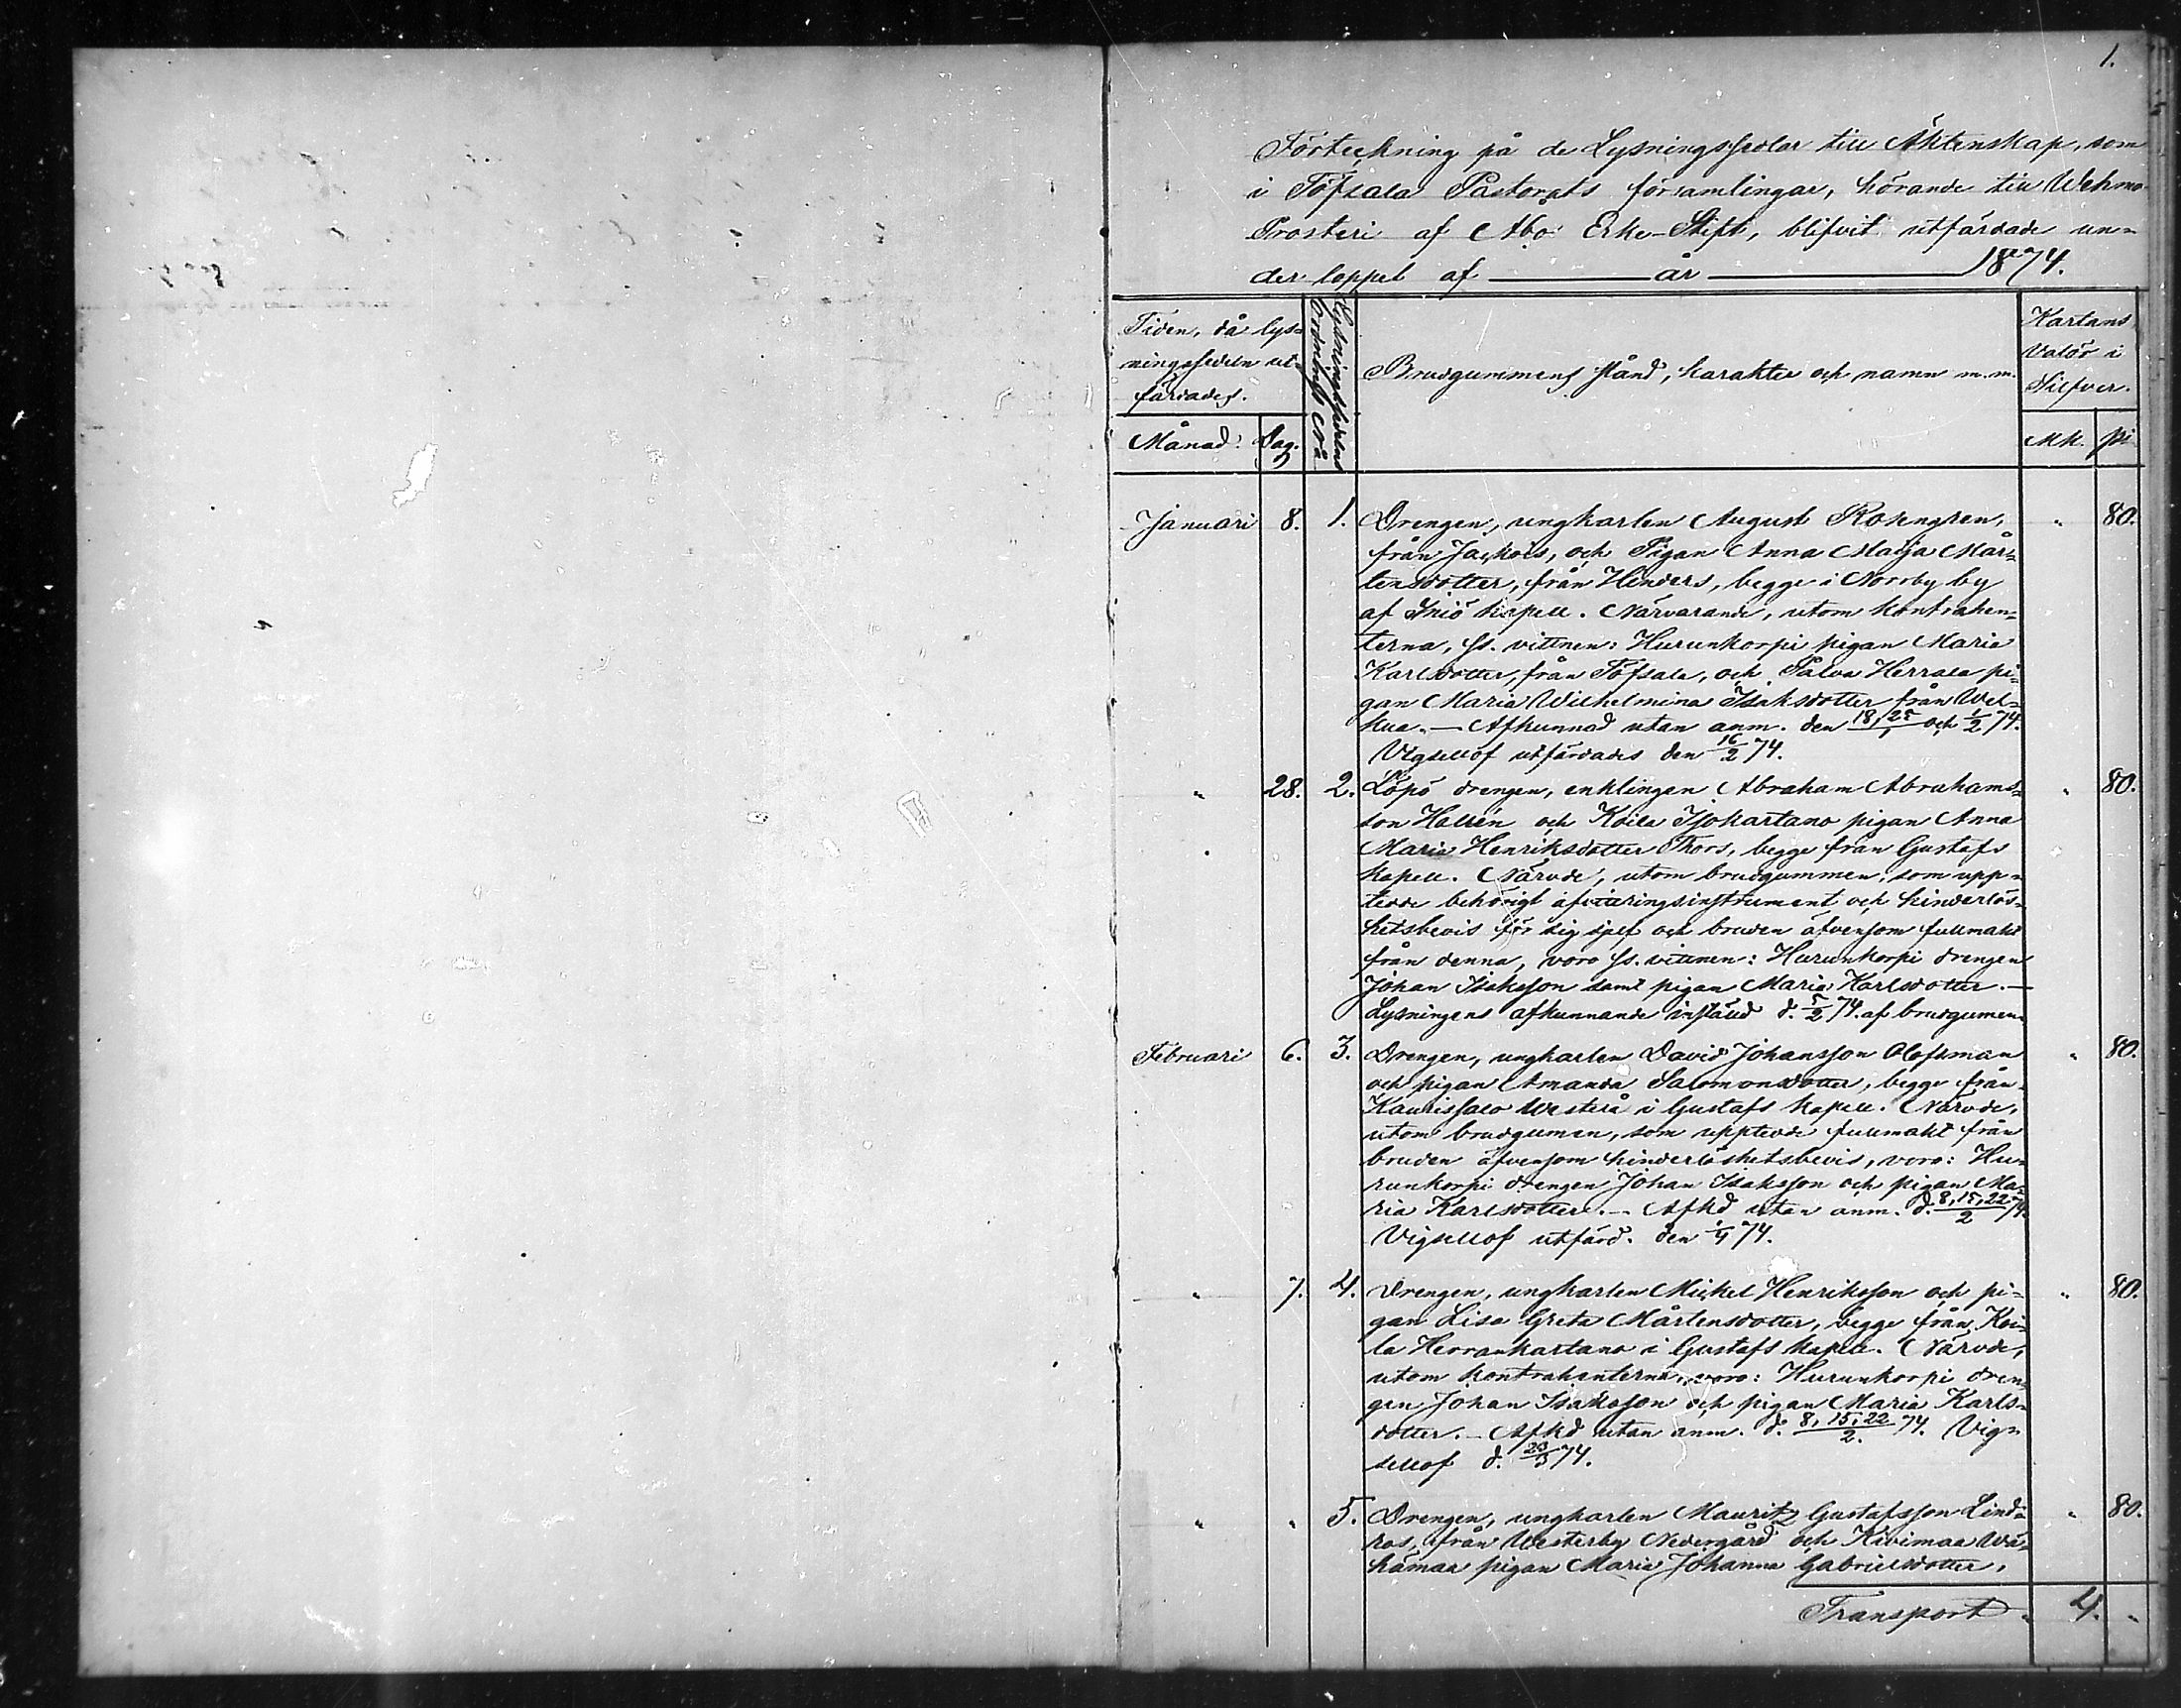 1.
Förteckning på de Lysningssedlar till Äktenskap, som
i Töfsala Pastorats församlingar, hörande till Wehmo
Prosteri af Åbo Erke-Stift, blifvit utfärdade un-
der loppet af — år — 1874.
Tiden, då lys-
ningssedeln ut-
färdades.
Månad. Dag.
Lysningssedelns
Ordnings Nå
Brudgummens stånd, karakter och namn m.m.
Kartans
Valör i
Silfver.
Mk. pi
Januari 8. 1. Drengen, ungkarlen August Rosengren, " 80.
från Jackois, och Pigan Anna Maja Mår-
tensdotter, från Hinders, begge i Norrby by
af Iniö kapell. Närvarande, utom kontrahen-
terna, ss. vittnen: Hurunkorpi pigan Maria
Karlsdotter, från Töfsala, och Palva Herrala pi-
gan Maria Wilhelmina Isaksdotter från Wel-
kua. — Afkunnad utan anm. den 18, 25/1 och 1/2 74.
Vigsellof utfärdades den 16/2 74.
" 28. 2. Löpö drengen, enklingen Abraham Abrahams- " 80.
son Hallén och Koila Isokartano pigan Anna
Maria Henriksdotter Thors, begge från Gustafs
kapell. Närvde, utom brudgummen, som upp-
tedde behörigt afvittringsinstrument och hinderlös-
hetsbevis för sig sjelf och bruden äfvensom fullmakt
från denna, voro ss. vittnen: Hurunkorpi drengen
Johan Isaksson samt pigan Maria Karlsdotter. —
Lysningens afkunnande inställd d. 5/2 74. af brudgumen.
Februari 6. 3. Drengen, ungkarlen David Johansson Olofsman " 80.
och pigan Amanda Salomonsdotter, begge från
Kaurissalo Westerå i Gustafs kapell. Närvde,
utom brudgumen, som upptedde fullmakt från
bruden äfvensom hinderlöshetsbevis, voro: Hu-
runkorpi drengen Johan Isaksson och pigan Ma-
ria Karlsdotter. — Afkd utan anm. d. 8, 15, 22/2 74.
Vigsellof utfärd. den 1/4 74.
" 7. 4. Drengen, ungkarlen Michel Henriksson och pi- " 80.
gan Lisa Greta Mårtensdotter, begge från Koi-
la Herrankartano i Gustafs kapell. Närvde,
utom kontrahenterna, voro: Hurunkorpi dren-
gen Johan Isaksson och pigan Maria Karls-
dotter. — Afkd utan anm. d. 8, 15, 22/2. 74. Vig-
sellof d. 23/3 74.
" " 5. Drengen, ungkarlen Mauritz Gustafsson Lind- " 80.
ros, från Westerby Nedergård och Kivimaa Wä-
hämaa pigan Maria Johanna Gabrielsdotter,
Transport " 4. "